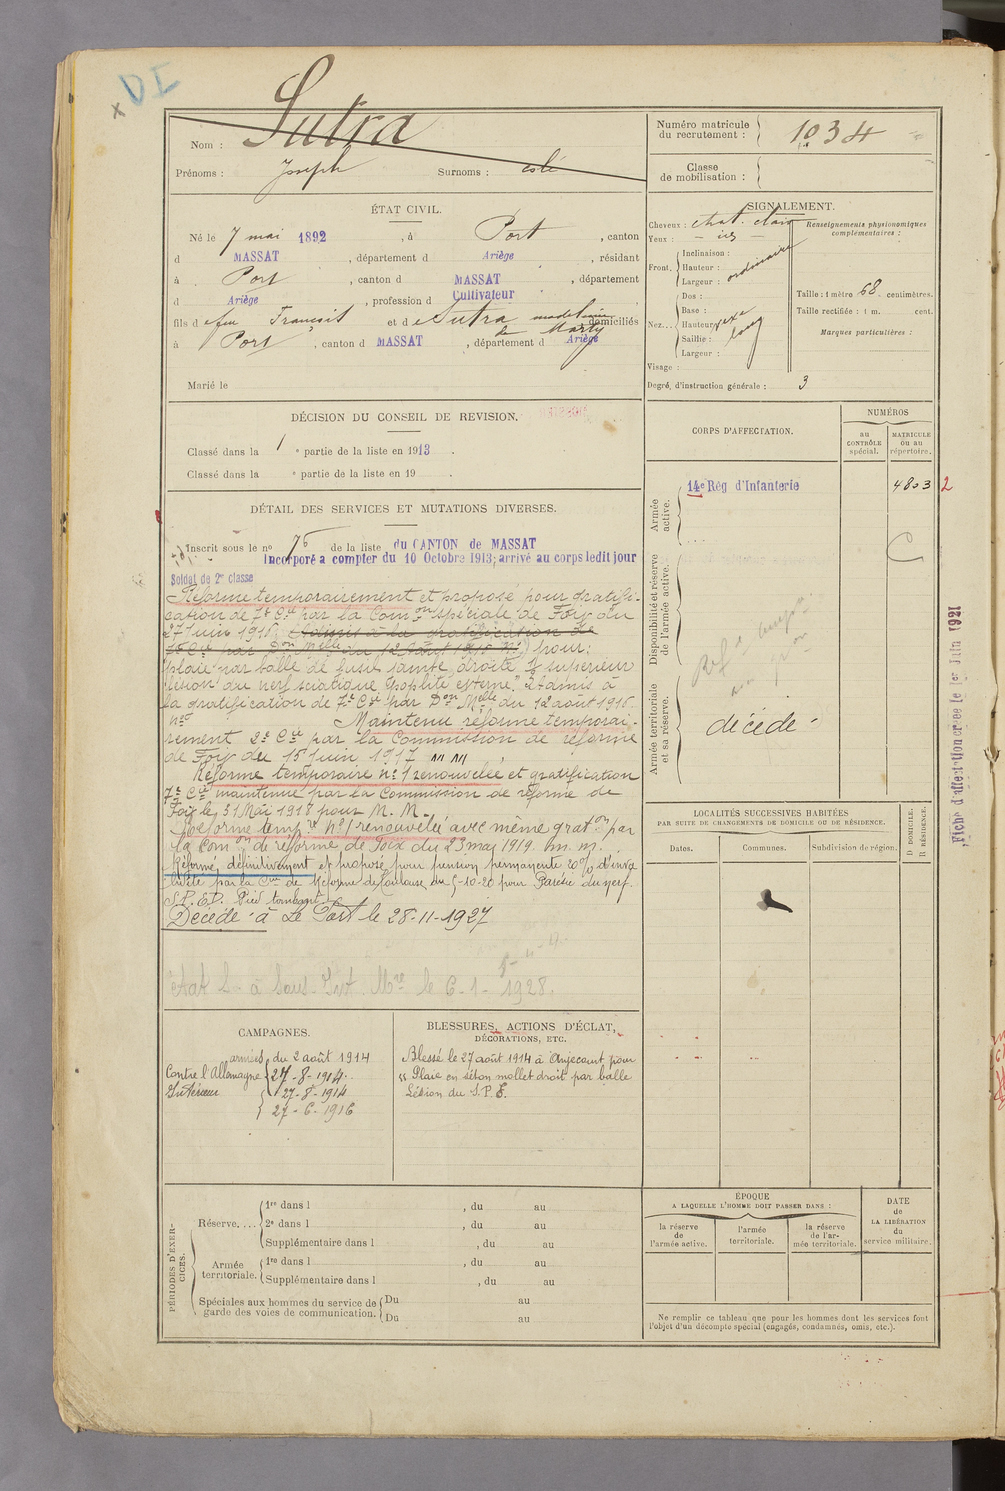 DI
Nom : Sutra
Prénoms : Joseph Surnoms :
Numéro matricule
du recrutement : 1034
Classe
de mobilisation :
ÉTAT CIVIL.
Né le 7 mai 1892, à Port, canton
d MASSAT, département d Ariège, résidant
à Port, canton d MASSAT, département
d Ariège, profession d Cultivateur
fils d e feu François et d e Sutra madeleine domiciliés
à Port, canton d MASSAT, département d Ariège
Marié le
SIGNALEMENT.
Cheveux : chat. clair
Yeux :
Front. Inclinaison :
Hauteur : ordinaire
Largeur :
Nez... Dos :
Base :
Hauteur
Saillie : long
Largeur :
Visage :
Renseignements physionomiques
complémentaires :
Taille : 1 mètre 68 centimètres.
Taille rectifiée : 1 m. cent.
Marques particulières :
Degré d'instruction générale : 3
DÉCISION DU CONSEIL DE REVISION.
Classé dans la 1 e partie de la liste en 1913.
Classé dans la e partie de la liste en 19 .
CORPS D'AFFECTATION.
NUMÉROS
au
CONTRÔLE
spécial.
MATRICULE
ou au
répertoire.
Armée
active.
14e Rég d'Infanterie 4803 2
Disponibilité et réserve
de l'armée active.
Armée territoriale
et sa réserve.
décédé
Fiche d'affect. le 1er Juin 1921
DÉTAIL DES SERVICES ET MUTATIONS DIVERSES.
Inscrit sous le no 76 de la liste du CANTON de MASSAT
Incorporé a compter du 10 Octobre 1913; arrivé au corps ledit jour
Soldat de 2e classe
Réformé temporairement et proposé pour gratifi-
cation de 7e Cie par la Comon spéciale de Foix du
27 Juin 1916. (Admis à la gratification de
7e Cie par Don Melle du 12 Août 1916 No) pour:
"plaie par balle de fusil jambe droite 1/3 supérieur
lésion du nerf sciatique poplité externe." Admis à
la gratification de 7e Cie par Don Melle du 12 août 1916.
no Maintenu réformé temporai-
rement 2e Cie par la Commission de réforme
de Foix du 15 Juin 1917
Réforme temporaire no 1 renouvelée et gratification
7e Cie maintenue par la Commission de réforme de
Foix le 31 Mai 1918 pour M. M.
Réforme tempre no 1 renouvelée avec même graton par
la Comon de réforme de Foix du 23 mai 1919. m. m.
Réformé définitivement et proposé pour pension permanente 20% d'inva
lidité par la Cion de Réforme de Toulouse du 5-10-20 pour Parésie du nerf.
S.P.E.D. Pied tombant.
Décédé à Le Port le 28-11-1927
le 6-1-1928.
CAMPAGNES.
Contre l'Allemagne armées du 2 août 1914
27-8-1914.
Intérieur 27-8-1914
27-6-1916
BLESSURES, ACTIONS D'ÉCLAT,
DÉCORATIONS, ETC.
Blessé le 27 août 1914 à Anjecourt pour
"Plaie en séton mollet droit par balle
Lésion du S.P.E.
LOCALITÉS SUCCESSIVES HABITÉES
PAR SUITE DE CHANGEMENTS DE DOMICILE OU DE RÉSIDENCE.
Dates. Communes. Subdivision de région. D DOMICILE. R RÉSIDENCE.
PÉRIODES D'EXER-
CICES.
Réserve.... 1re dans l , du au
2e dans l , du au
Supplémentaire dans l , du au
Armée
territoriale. 1re dans l , du au
Supplémentaire dans l , du au
Spéciales aux hommes du service de
garde des voies de communication. Du au
Du au
ÉPOQUE
A LAQUELLE L'HOMME DOIT PASSER DANS :
la réserve
de
l'armée active.
l'armée
territoriale.
la réserve
de l'ar-
mée territoriale.
DATE
de
LA LIBÉRATION
du
service militaire.
Ne remplir ce tableau que pour les hommes dont les services font
l'objet d'un décompte spécial (engagés, condamnés, omis, etc.).